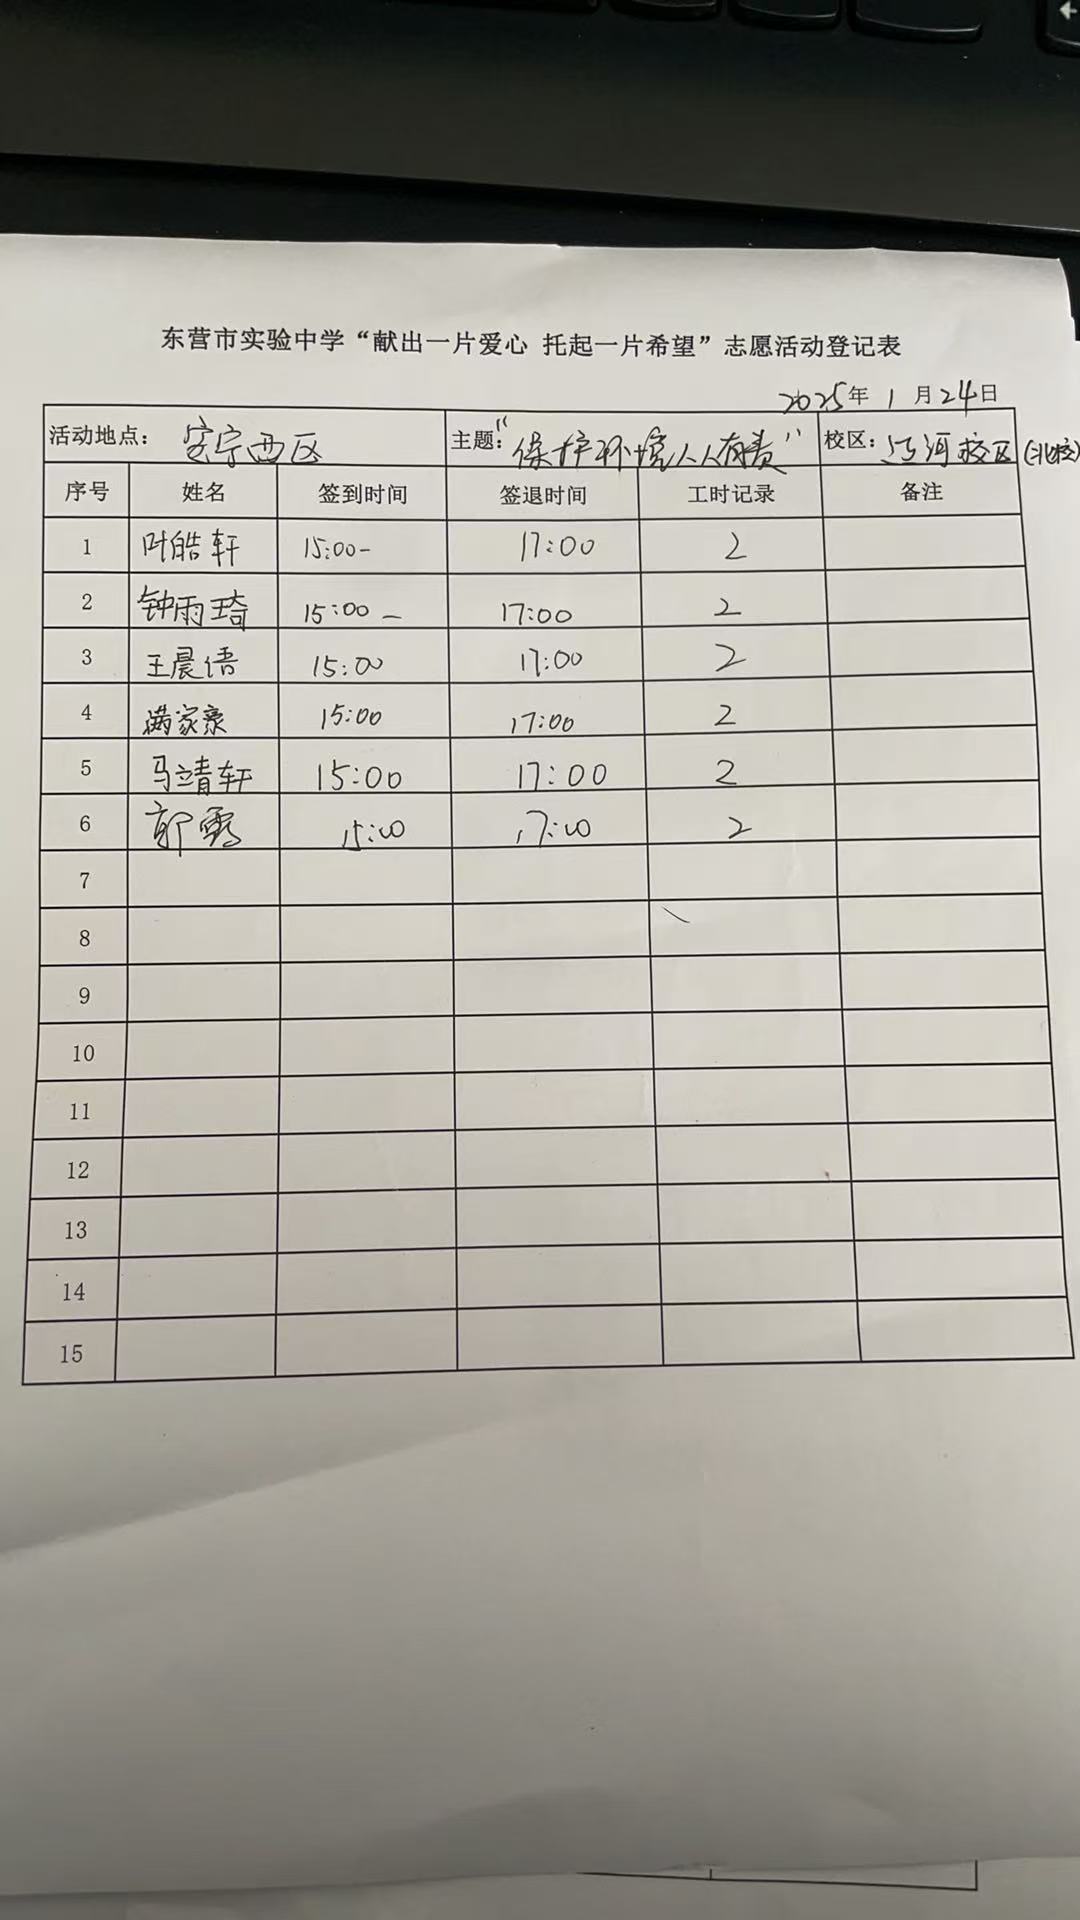 东营市实验中学“献出一片爱心 托起一片希望”志愿活动登记表
2025年 1月24日
活动地点： 安宁西区 主题：“保护环境人人有责” 校区：辽河校区(北校)
序号 姓名 签到时间 签退时间 工时记录 备注
1 叶皓轩 15:00- 17:00 2
2 钟雨琦 15:00- 17:00 2
3 王晨语 15:00 17:00 2
4 满家豪 15:00 17:00 2
5 马靖轩 15:00 17:00 2
6 郭霞 15:00 17:00 2
7
8
9
10
11
12
13
14
15